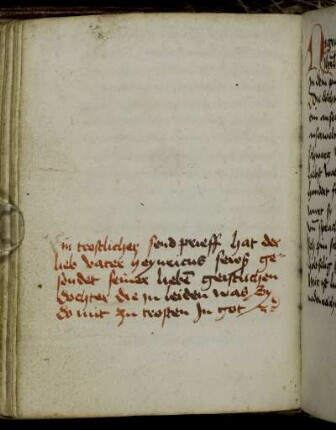 in trostlicher send prieff hat der
lieb vater heynricus sewß ge
sendet seiner lieben geistlichen
dochter die in leiden was sy
do mit zu trosten in got